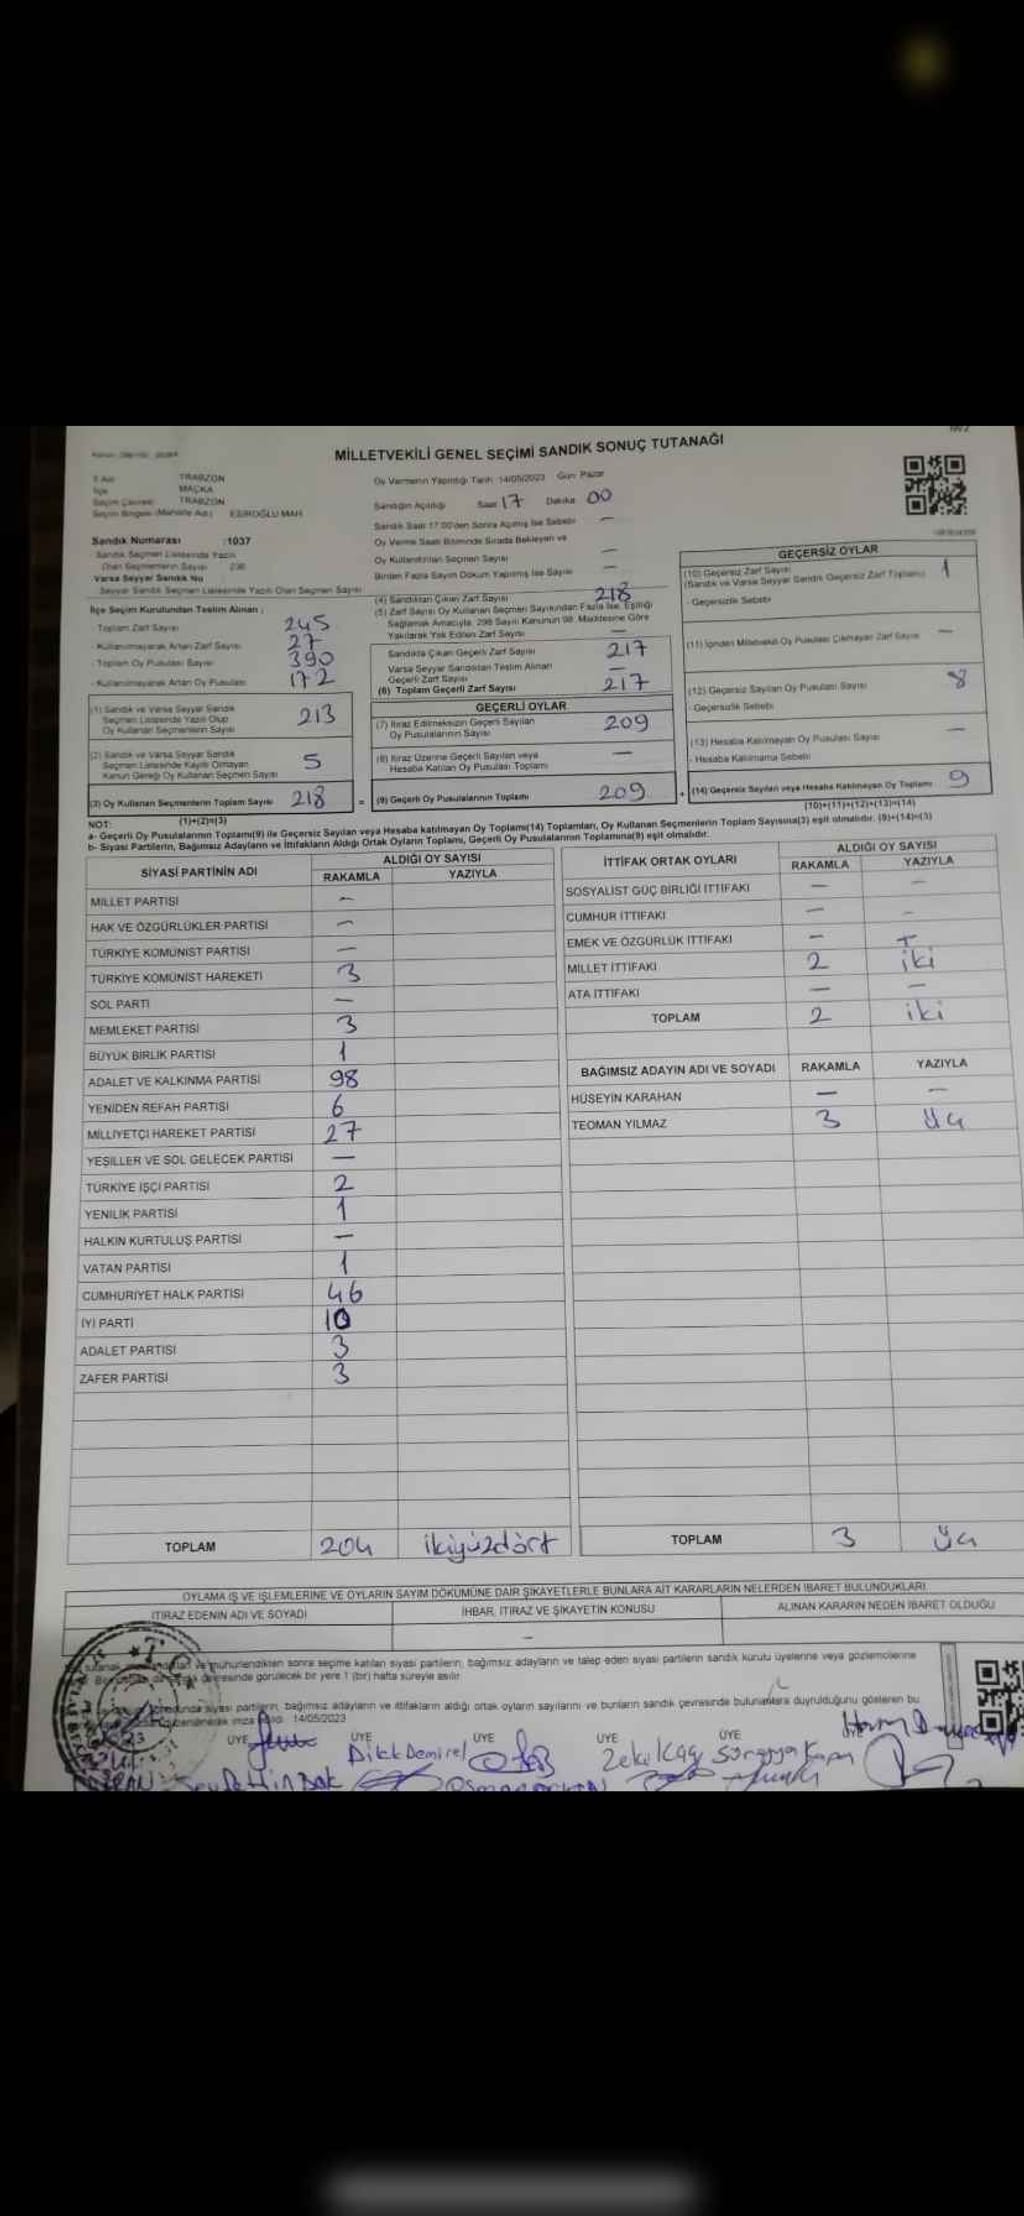 MİLLETVEKİLİ GENEL SEÇİMİ SANDIK SONUÇ TUTANAĞI
TRABZON
İlçe MAÇKA
Seçim Çevresi TRABZON
ESİROĞLU MAH
Oy Vermenin Yapıldığı Tarih 14/05/2023 Gün Pazar
Sandığın Açıldığı Saat 17 Dakika 00
Sandık Saat 17:00'den Sonra Açılmış İse Sebebi —
Oy Verme Saati Bitiminde Sırada Bekleyen ve
Oy Kullandırılan Seçmen Sayısı —
Birden Fazla Sayım Döküm Yapılmış İse Sayısı —
Sandık Numarası :1037
Sandık Seçmen Listesinde Yazılı
Olan Seçmenlerin Sayısı
Varsa Seyyar Sandık No
Seyyar Sandık Seçmen Listesinde Yazılı Olan Seçmen Sayısı
İlçe Seçim Kurulundan Teslim Alınan ;
- Toplam Zarf Sayısı 245
- Kullanılmayarak Artan Zarf Sayısı 27
- Toplam Oy Pusulası Sayısı 390
- Kullanılmayarak Artan Oy Pusulası 172
(1) Sandık ve Varsa Seyyar Sandık
Seçmen Listesinde Yazılı Olup
Oy Kullanan Seçmenlerin Sayısı 213
(2) Sandık ve Varsa Seyyar Sandık
Seçmen Listesinde Kayıtlı Olmayan
Kanun Gereği Oy Kullanan Seçmen Sayısı 5
(3) Oy Kullanan Seçmenlerin Toplam Sayısı 218
(1)+(2)=(3)
(4) Sandıktan Çıkan Zarf Sayısı 218
(5) Zarf Sayısı Oy Kullanan Seçmen Sayısından Fazla İse, Eşitliği
Sağlamak Amacıyla, 298 Sayılı Kanunun 98. Maddesine Göre
Yakılarak Yok Edilen Zarf Sayısı —
Sandıkta Çıkan Geçerli Zarf Sayısı 217
Varsa Seyyar Sandıktan Teslim Alınan
Geçerli Zarf Sayısı —
(6) Toplam Geçerli Zarf Sayısı 217
GEÇERLİ OYLAR
(7) İtiraz Edilmeksizin Geçerli Sayılan
Oy Pusulalarının Sayısı 209
(8) İtiraz Üzerine Geçerli Sayılan veya
Hesaba Katılan Oy Pusulası Toplamı —
= (9) Geçerli Oy Pusulalarının Toplamı 209
GEÇERSİZ OYLAR
(10) Geçersiz Zarf Sayısı 1
(Sandık ve Varsa Seyyar Sandık Geçersiz Zarf Toplamı)
- Geçersizlik Sebebi
(11) İçinden Milletvekili Oy Pusulası Çıkmayan Zarf Sayısı —
(12) Geçersiz Sayılan Oy Pusulası Sayısı 8
- Geçersizlik Sebebi
(13) Hesaba Katılmayan Oy Pusulası Sayısı —
- Hesaba Katılmama Sebebi
+ (14) Geçersiz Sayılan veya Hesaba Katılmayan Oy Toplamı 9
(10)+(11)+(12)+(13)=(14)
NOT:
a- Geçerli Oy Pusulalarının Toplamı(9) ile Geçersiz Sayılan veya Hesaba katılmayan Oy Toplamı(14) Toplamları, Oy Kullanan Seçmenlerin Toplam Sayısına(3) eşit olmalıdır. (9)+(14)=(3)
b- Siyasi Partilerin, Bağımsız Adayların ve İttifakların Aldığı Ortak Oyların Toplamı, Geçerli Oy Pusulalarının Toplamına(9) eşit olmalıdır.
SİYASİ PARTİNİN ADI ALDIĞI OY SAYISI
RAKAMLA YAZIYLA
MİLLET PARTİSİ —
HAK VE ÖZGÜRLÜKLER PARTİSİ —
TÜRKİYE KOMÜNİST PARTİSİ —
TÜRKİYE KOMÜNİST HAREKETİ 3
SOL PARTİ —
MEMLEKET PARTİSİ 3
BÜYÜK BİRLİK PARTİSİ 1
ADALET VE KALKINMA PARTİSİ 98
YENİDEN REFAH PARTİSİ 6
MİLLİYETÇİ HAREKET PARTİSİ 27
YEŞİLLER VE SOL GELECEK PARTİSİ —
TÜRKİYE İŞÇİ PARTİSİ 2
YENİLİK PARTİSİ 1
HALKIN KURTULUŞ PARTİSİ —
VATAN PARTİSİ 1
CUMHURİYET HALK PARTİSİ 46
İYİ PARTİ 10
ADALET PARTİSİ 3
ZAFER PARTİSİ 3
TOPLAM 204 ikiyüzdört
İTTİFAK ORTAK OYLARI ALDIĞI OY SAYISI
RAKAMLA YAZIYLA
SOSYALİST GÜÇ BİRLİĞİ İTTİFAKI — —
CUMHUR İTTİFAKI — —
EMEK VE ÖZGÜRLÜK İTTİFAKI —
MİLLET İTTİFAKI 2 iki
ATA İTTİFAKI — —
TOPLAM 2 iki
BAĞIMSIZ ADAYIN ADI VE SOYADI RAKAMLA YAZIYLA
HÜSEYİN KARAHAN — —
TEOMAN YILMAZ 3 üç
TOPLAM 3 üç
OYLAMA İŞ VE İŞLEMLERİNE VE OYLARIN SAYIM DÖKÜMÜNE DAİR ŞİKAYETLERLE BUNLARA AİT KARARLARIN NELERDEN İBARET BULUNDUKLARI
İTİRAZ EDENİN ADI VE SOYADI İHBAR, İTİRAZ VE ŞİKAYETİN KONUSU ALINAN KARARIN NEDEN İBARET OLDUĞU
—
mühürlendikten sonra seçime katılan siyasi partilerin, bağımsız adayların ve talep eden siyasi partilerin sandık kurulu üyelerine veya gözlemcilerine
çevresinde görülecek bir yere 1 (bir) hafta süreyle asılır.
siyasi partilerin, bağımsız adayların ve ittifakların aldığı ortak oyların sayılarını ve bunların sandık çevresinde bulunanlara duyrulduğunu gösteren bu
14/05/2023
ÜYE ÜYE ÜYE ÜYE ÜYE
Demirel Zeki